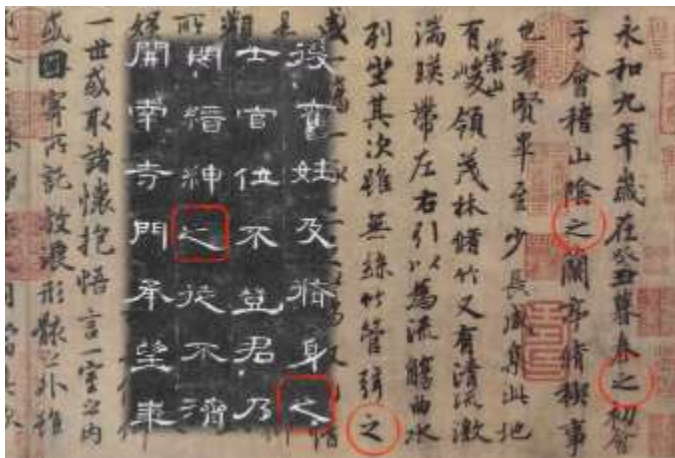 永和九年歲在癸丑暮春之初會
于會稽山陰之蘭亭脩禊事
也羣賢畢至少長咸集此地
有崇山峻領茂林脩竹又有清流激
湍暎帶左右引以為流觴曲水
列坐其次雖無絲竹管弦之
後舊姓及脩身之
士官位不登君乃
閔縉紳之徒不濟
開南寺門承望華
一世或取諸懷抱悟言一室之內
或因寄所託放浪形骸之外雖